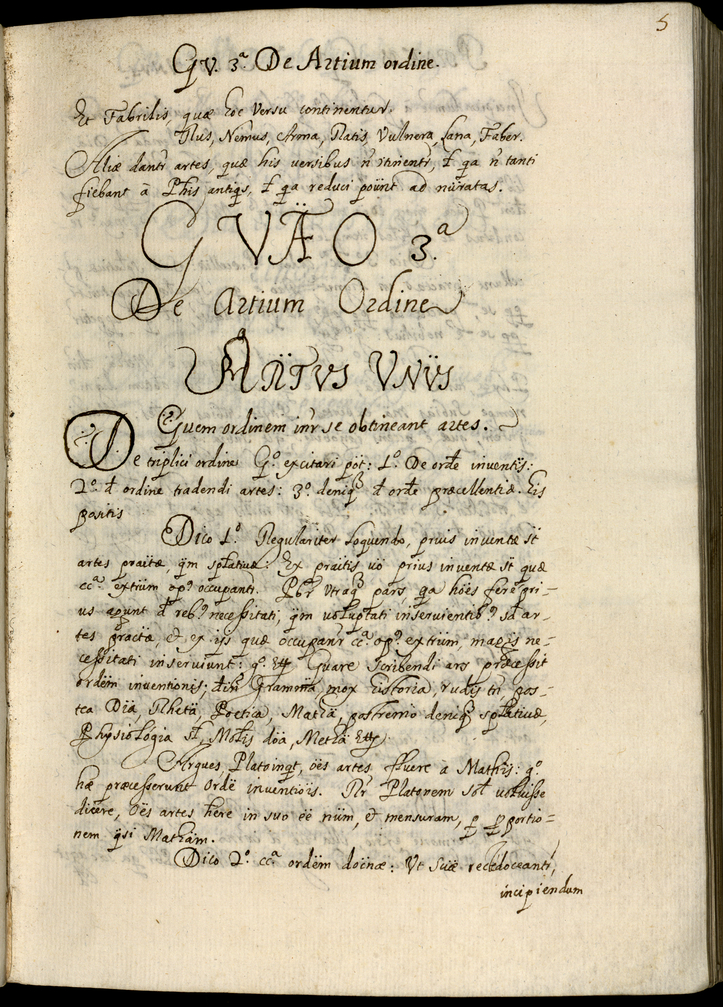 5
QV. 3.ª De Artium ordine.
Et Fabrilis quæ hoc versu continentur.
Rus, Nemus, Arma, Ratis, Vulnera, Lana, Faber.
Aliæ dantr artes, quæ his versibus ñ ctinentr, ł qa ñ tanti
fiebant à Phis antiqs, ł qa reduci poũnt ad nũratas.
QVÆO 3.ª
De Artium Ordine
UNIJS
Quem ordinem inr se obtineant artes.
De triplici ordine Qº. excitari põt: 1º. De ordẽ inventijs:
2º. đ ordine tradendi artes: 3º. deniq3 đ ordẽ præcellentiæ. Eis
positis
Dico 1º. Regulariter loquendo, prius inventæ st̃
artes
 praitis uo prius inventæ st̃ quæ
cc.ª extrium opº. occupantr. Pbr utraq3 pars, qa hões fere pri-
us agunt đ rebº necessitati, qm̃ voluptati inservientibº: sđ ar-
tes practæ, & ex ijs quæ occupanr cc.ª opº. extrium, magis ne-
cessitati inserviunt: gº. Quare Scribendi ars præcessit
ordẽm inventionis; Gramm̃a, mox Historia, rudis tñ, pos-
tea Dia, Rheta, Poetica, Matia, postremo deniq3
Physiologia Motis
Argues, Plato inqt, oẽs artes fluere à Mathis: gº.
hæ præcesserunt Ordẽ inventiõis. Rr Platonem voluisse
dicere, Oẽs artes hẽre in suo eẽ nũm, & mensuram, proportio-
nem qsi Matham.
Dico 2º. cc.ª ordẽm docnæ: Ut Sciæ recte doceantr,
incipiendum